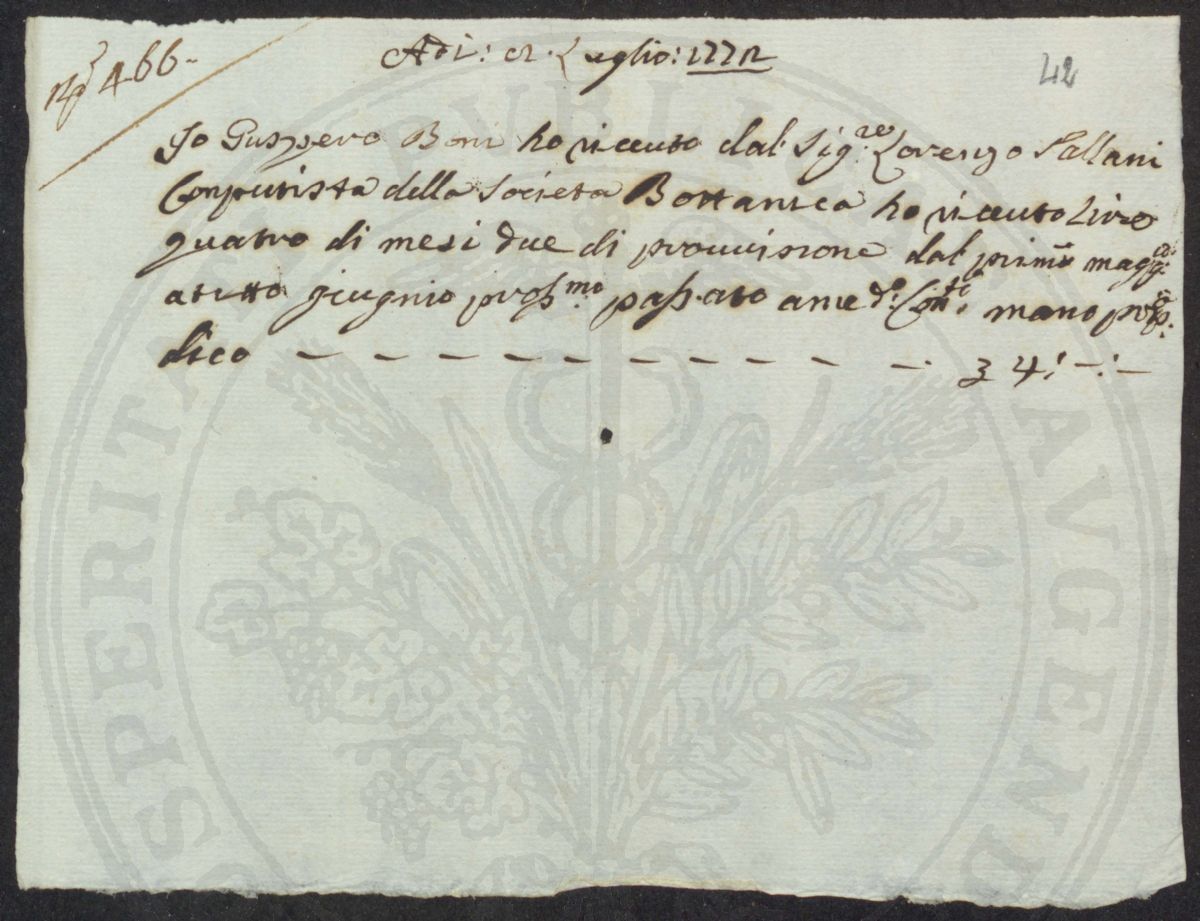 N.º 466.
42
Adi: 2. Luglio: 1772
Io Guspero Boni ho riceuto dal Sig.re Lorenzo Fallani
Conputista della Societa Bottanica ho riceuto Lire
quatro di mesi due di prouuisione dal primo magg.o
atutto giugnio proß.mo paßato ame d.o Con.ti mano prop.
dico — — — — — — — — — — — 3 4:—:—
PROSPERITATI PVBLICAE AVGENDAE